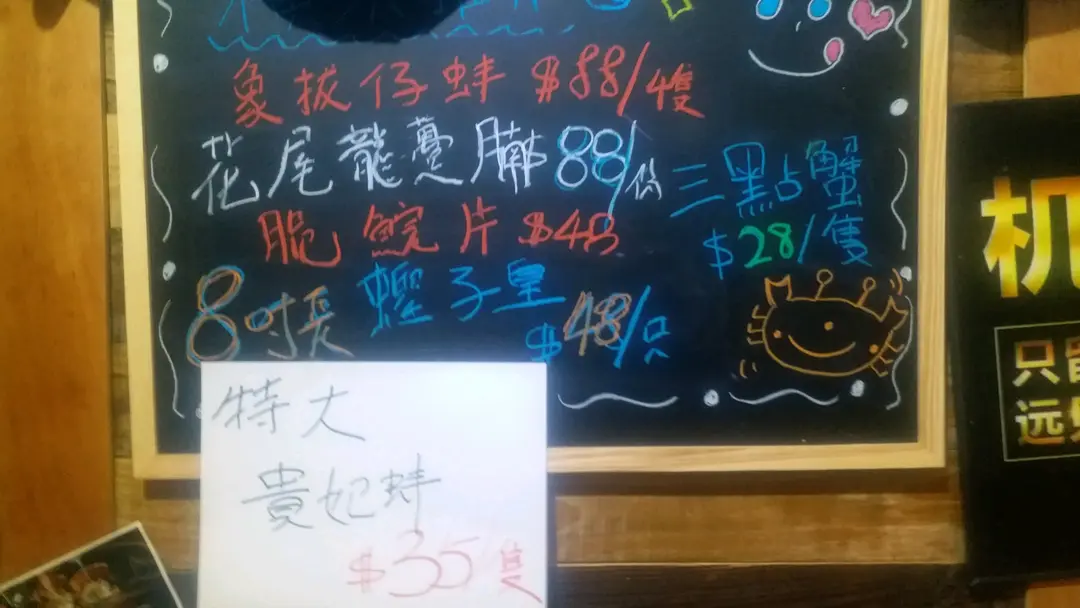 象拔仔蚌 $88/4隻
花尾龍躉腩 88/份
三點蟹
$28/隻
脆鯇片 $48
8吋長 蟶子皇
$48/只
特大
貴妃蚌
$35隻
机
只留
远